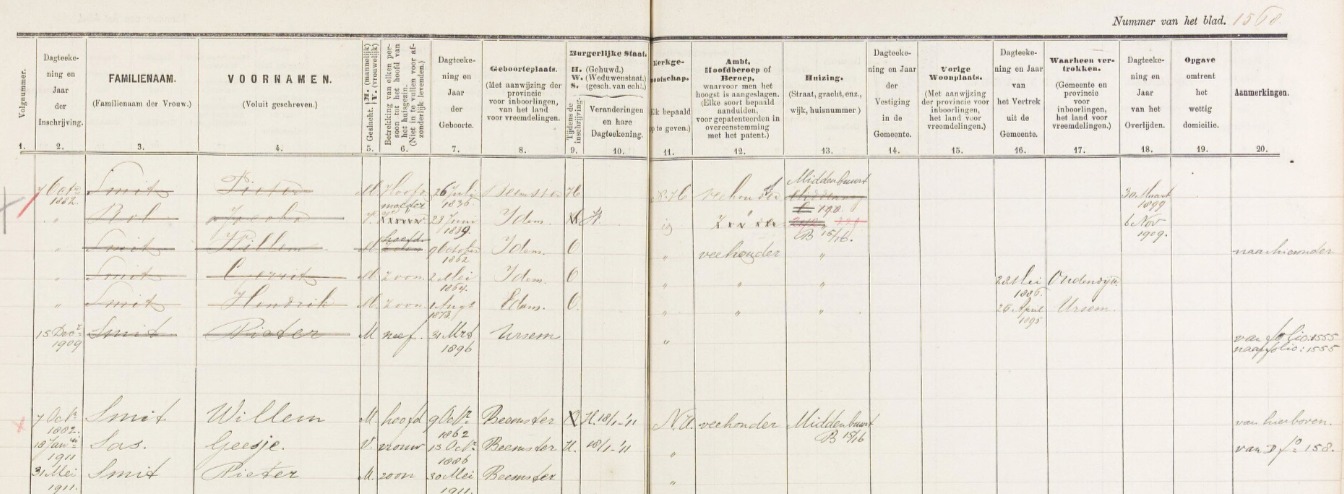 Nummer van het blad. 1568
Volgnummer.
Dagteeke-
ning en
Jaar
der
Inschrijving.
FAMILIENAAM.
(Familienaam der Vrouw.)
VOORNAMEN.
(Voluit geschreven.)
Geslacht. M. (mannelijk) V. (vrouwelijk)
Betrekking van elken per-
soon tot het hoofd van
het huisgezin.
(Niet in te vullen voor af-
zonderlijk levenden.)
Dagteeke-
ning en
Jaar
der
Geboorte.
Geboorteplaats.
(Met aanwijzing der
provincie
voor inboorlingen,
van het land
voor vreemdelingen.)
Burgerlijke Staat.
H. (Gehuwd.)
W. (Weduwenstaat.)
S. (gesch. van echt.)
Tijdens de
inschrijving.
Veranderingen
en hare
Dagteekening.
Kerkge-
nootschap.
Ambt,
Hoofdberoep of
Beroep,
waarvoor men het
hoogst is aangeslagen.
(Elke soort bepaald
aanduiden,
voor gepatenteerden in
overeenstemming
met het patent.)
Huizing.
(Straat, gracht, enz.,
wijk, huisnummer.)
Dagteeke-
ning en Jaar
der
Vestiging
in de
Gemeente.
Vorige
Woonplaats.
(Met aanwijzing
der provincie voor
inboorlingen,
het land voor
vreemdelingen.)
Dagteeke-
ning en
Jaar
van
het Vertrek
uit de
Gemeente.
Waarheen ver-
trokken.
(Gemeente en
provincie
voor
inboorlingen,
het land voor
vreemdelingen.)
Dagteeke-
ning en
Jaar
van het
Overlijden.
Opgave
omtrent
het
wettig
domicilie.
Aanmerkingen.
1. 2. 3. 4. 5. 6. 7. 8. 9. 10. 11. 12. 13. 14. 15. 16. 17. 18. 19. 20.
7 Octr 1882 Smit Pieter M. Hoofd 26 July Beemster H N.H. veehouder Middenbuurt 30 Maart 1899
" V. Idem. " B 15/16. 6 Nov 1909.
" Smit Willem M hoofd 9 October 1862 Idem. O " veehouder " naar hieronder
" Smit M. Zoon 2 Mei 1864. Idem O " " " 22 Mei
" Smit Hendrik M. Zoon 1 Aug Edam. O " " " 26 April 1895 Ursem.
15 Decr 1909 Smit Pieter M neef. 31 Mrt 1896 Ursem " van folio: 1555
naar folio: 1555
7 Octr 1882. Smit Willem M. hoofd 9 Octr 1862 Beemster O H. 18/1-'11 N.H. veehouder Middenbuurt B 15/16 van hierboven.
18 Januari 1911 Sas. Geesje. V. vrouw 15 Octr 1886 Beemster H. 18/1-'11 " van fo 158.
31 Mei 1911. Smit Pieter M. zoon 30 Mei 1911. Beemster "